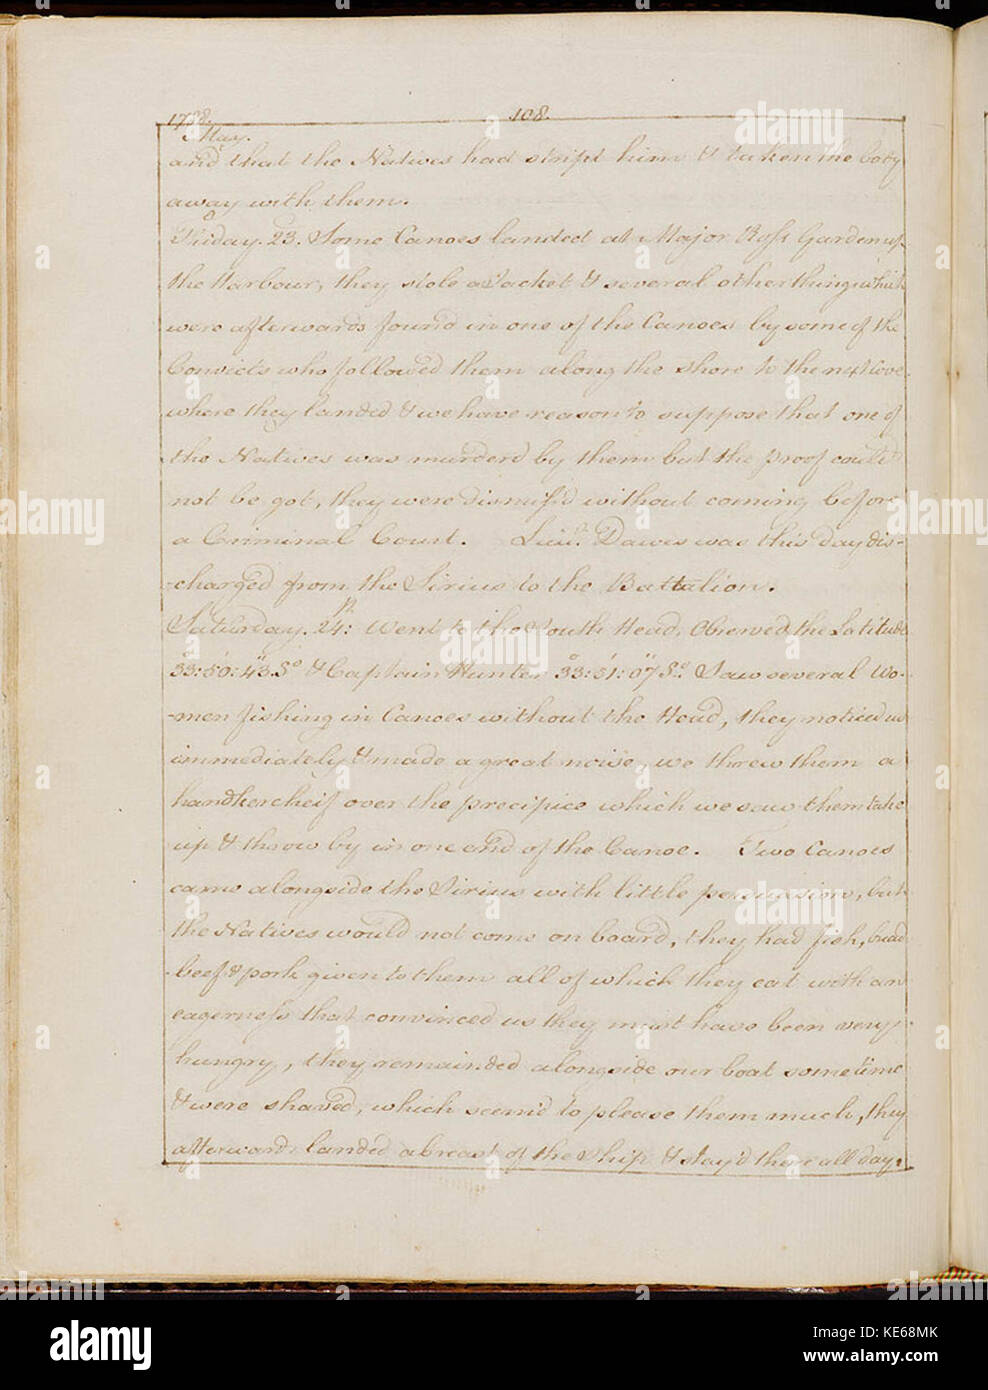 1788. 108.
May.
and that the Natives had stript him & taken the body
away with them.
Friday. 23. Some Canoes landed at Major Ross Garden up
the Harbour, they stole a Jacket & several other things which
were afterwards found in one of the Canoes by some of the
Convicts who followed them along the shore to the next Cove
where they landed & we have reason to suppose that one of
the Natives was murderd by them but the proof could
not be got, they were dismiss'd without coming before
a Criminal Court. Lieut. Dawes was this day dis-
-charged from the Sirius to the Battalion.
Saturday. 24th: Went to the South Head, Observed the Latitude
33°:50':43" So & Captain Hunter 33°:51':07" So. Saw several Wo-
-men fishing in Canoes without the Head, they noticed us
immediately & made a great noise, we threw them a
handkercheif over the precipice which we saw them take
up & throw by in one end of the Canoe. Two Canoes
came alongside the Sirius with little persuasion, but
the Natives would not come on board, they had fish, bread
beef & pork given to them all of which they eat with an
eagerness that convinced us they must have been very
hungry, they remainded alongside our boat some time
& were shaved, which seem'd to please them much, they
afterwards landed abreast of the ship & stay'd there all day.
alamy
a
alamy
KE68MK
www.alamy.com